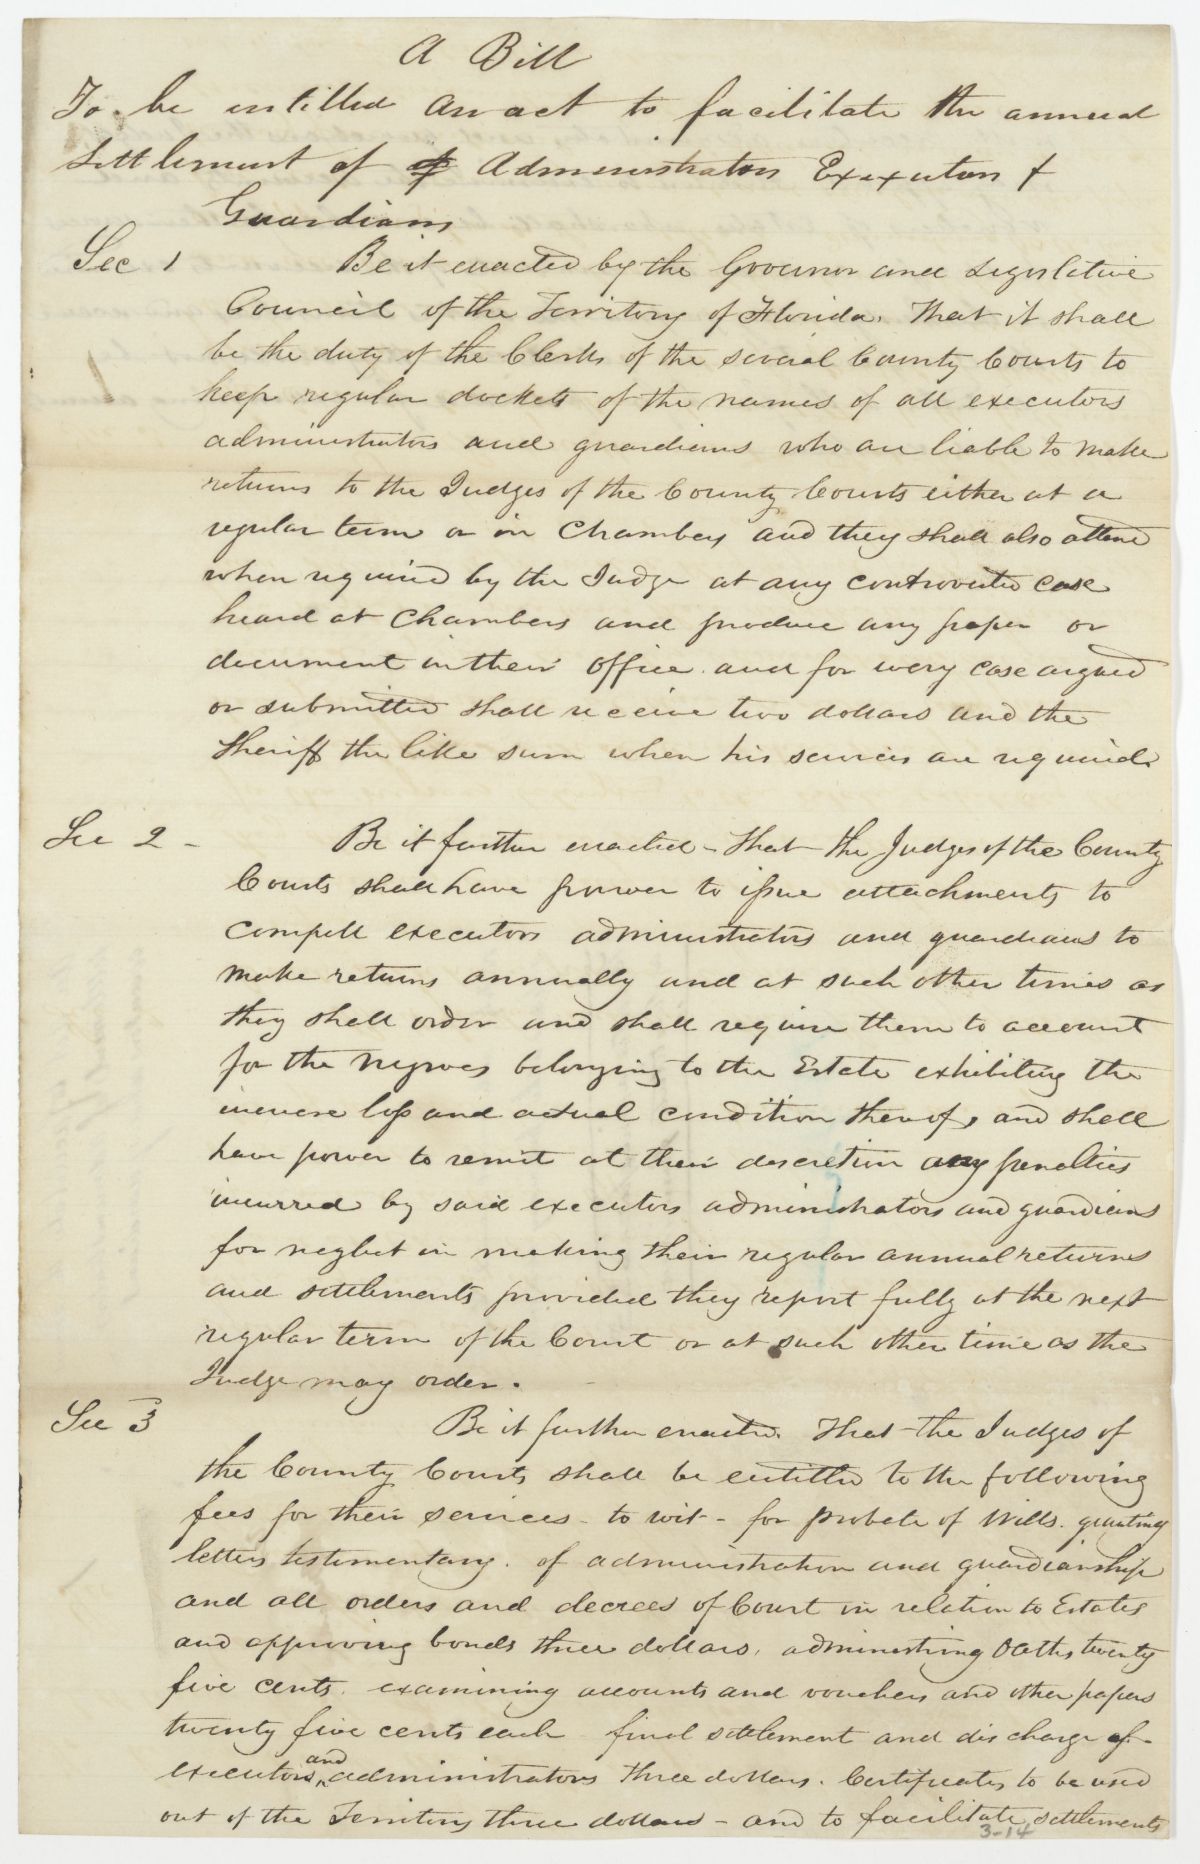 A Bill
To be entitled An act to facilitate the annual
Settlement of of Administrators Executors &
Guardians
Sec 1 Be it enacted by the Governor and Legislative
Council of the Territory of Florida. That it shall
be the duty of the Clerks of the several County Courts to
keep regular dockets of the names of all executors
administrators and guardians who are liable to make
returns to the Judges of the County Courts either at a
regular term or in Chambers and they shall also attend
when required by the Judge at any controverted case
heard at Chambers and produce any paper or
document in their office. and for every case argued
or submitted shall receive two dollars and the
Sheriff the like sum when his services are required.
Sec 2 - Be it further enacted - That the Judges of the County
Courts shall have power to issue attachments to
compell executors administrators and guardians to
make returns annually and at such other times as
they shall order and shall require them to account
for the negroes belonging to the Estate exhibiting the
increase loss and actual condition thereof, and shall
have power to remit at their descretion any penalties
incurred by said executors administrators and guardians
for neglect in making their regular annual returns
and settlements provided they report fully at the next
regular term of the Court or at such other time as the
Judge may order.
Sec 3 Be it further enacted. That the Judges of
the County Courts shall be entitled to the following
fees for their services - to wit - for probate of Wills. granting
letters testimentary. of administration and guardianship
and all orders and decrees of Court in relation to Estates
and approving bonds three dollars. adminestring Oaths twenty
five cents. examining accounts and vouchers and other papers
twenty five cents each final settlement and discharge of
executors and administrators three dollars. Certificates to be used
out of the Territory three dollars - and to facilitate settlements
3-14